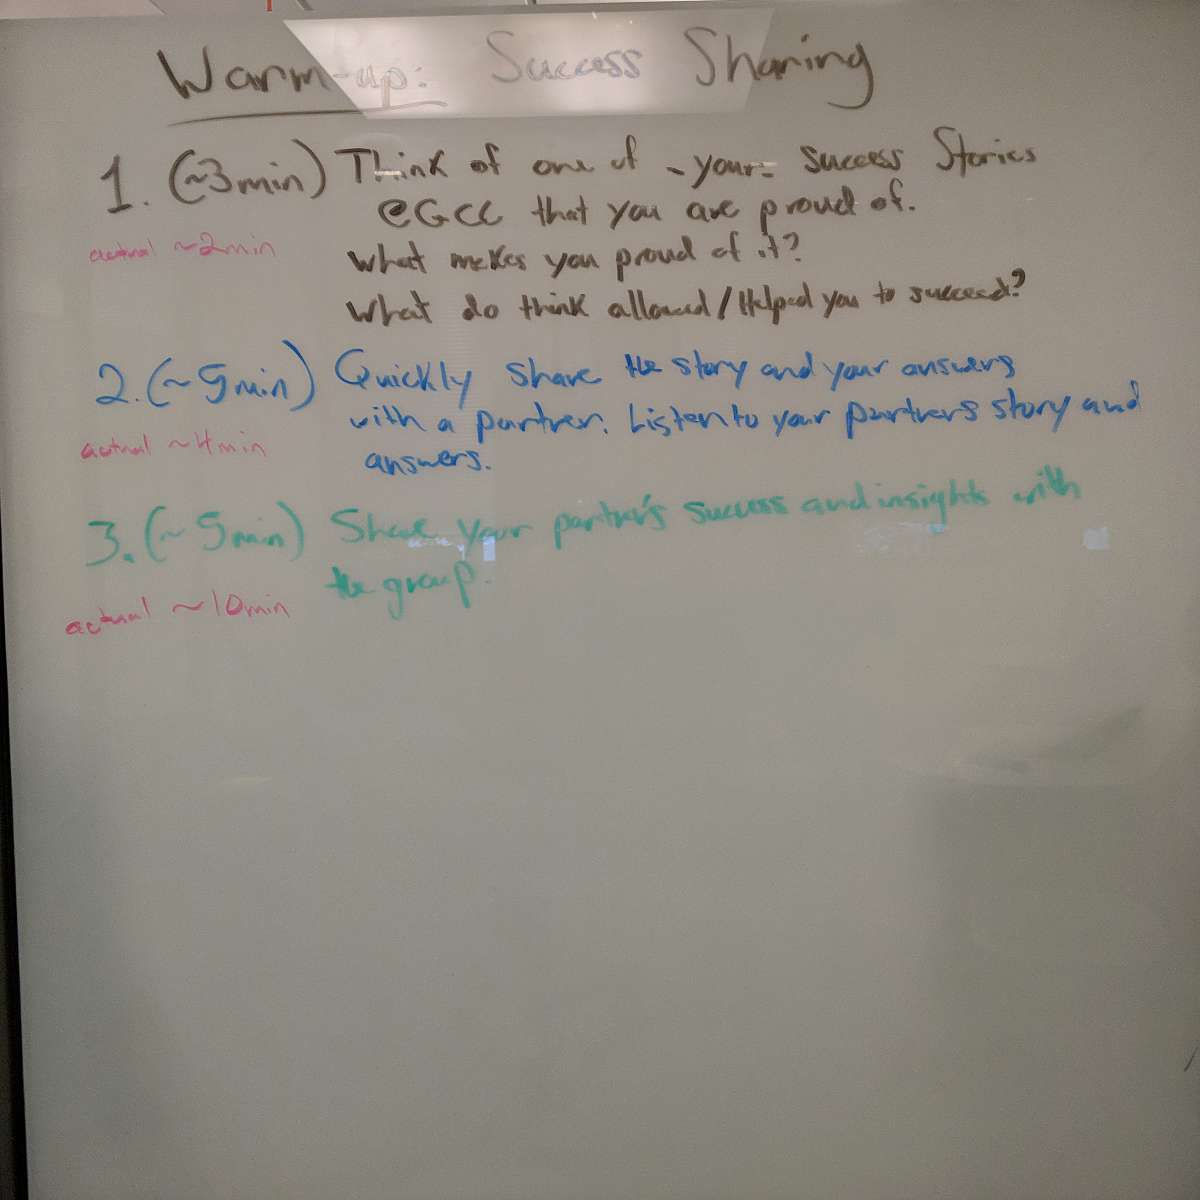 Warm-up: Success Sharing
1. (~3min) Think of one of -your- success Stories
@GCC that you are proud of.
actual ~2min
What makes you proud of it?
What do think allowed/Helped you to succeed?
2. (~5min) Quickly share the story and your answers
with a partner. Listen to your partners story and
actual ~4min
answers.
3. (~5min) Share your partner's success and insights with
the group.
actual ~10min